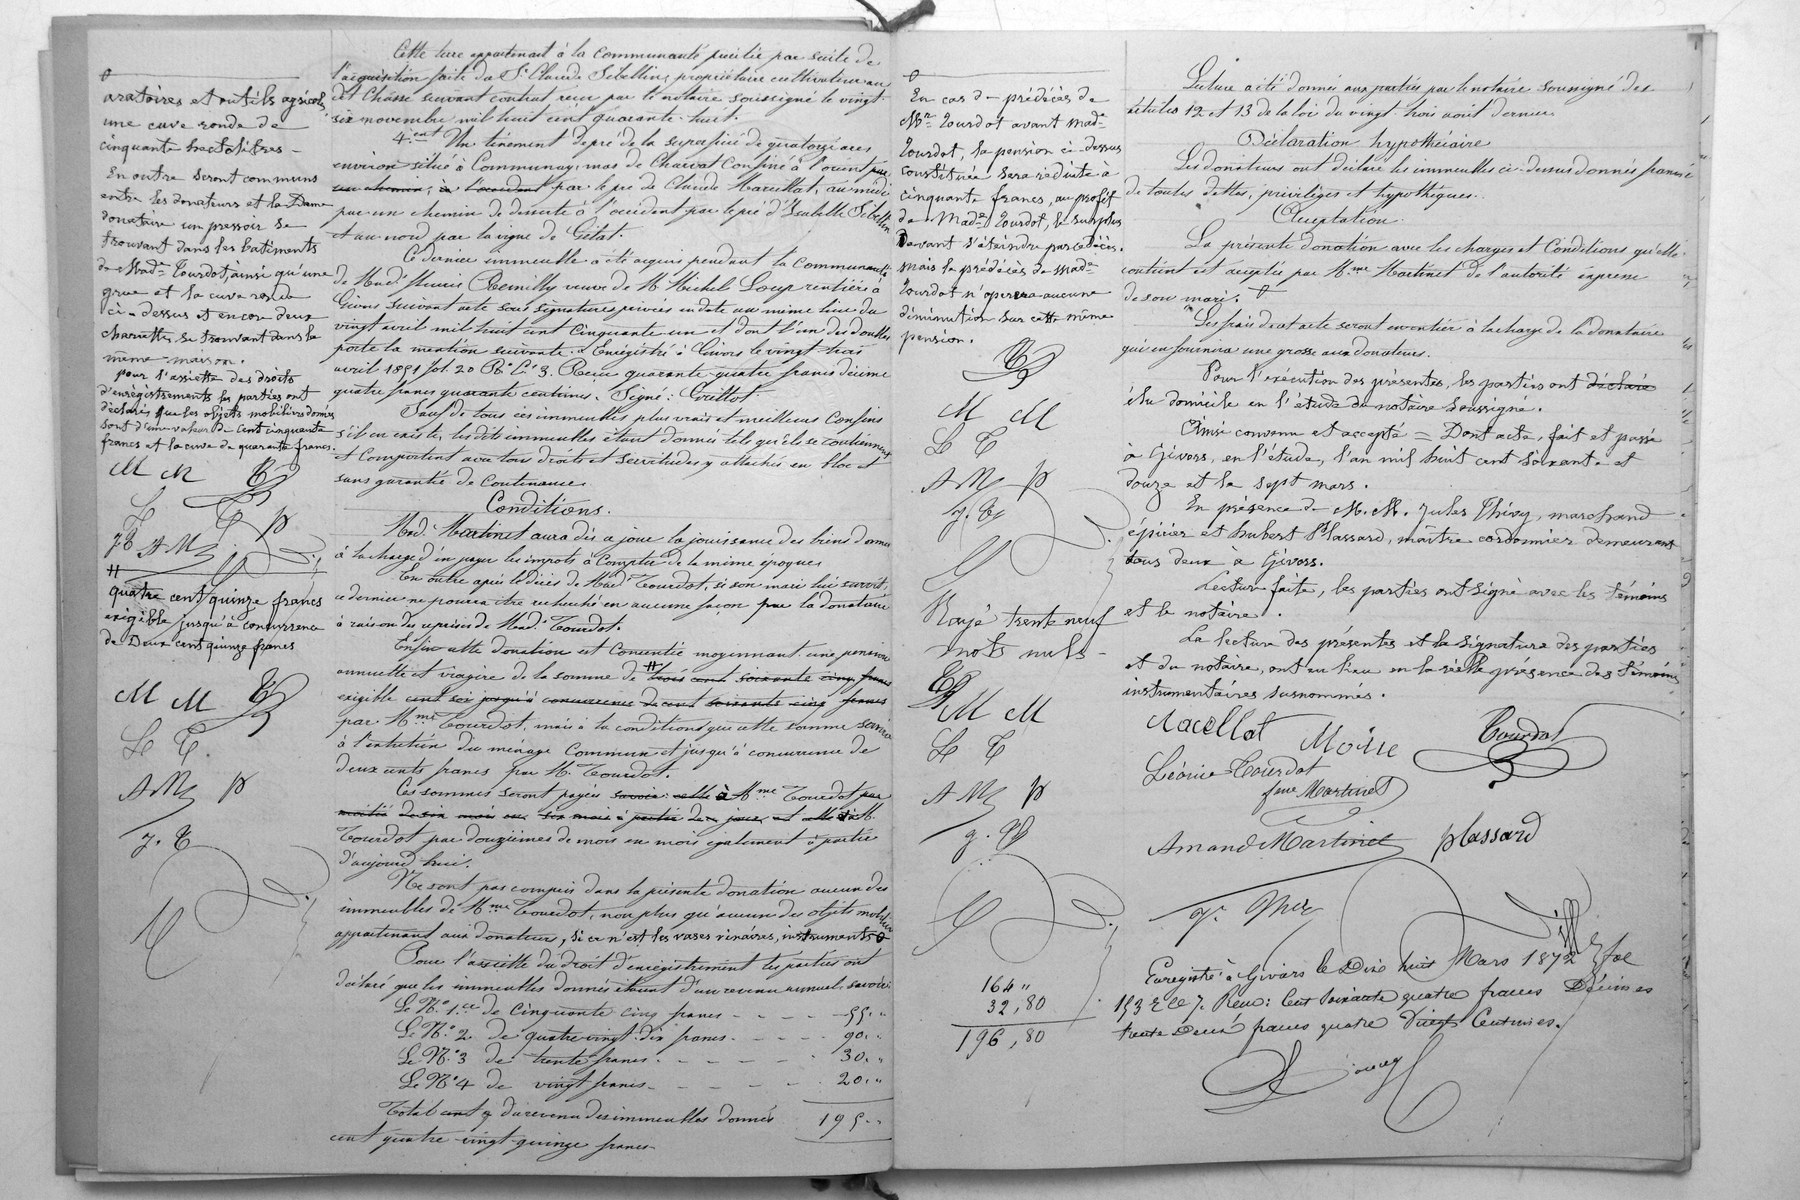 Cette terre appartenait à la Communauté précitée par suite de
l'acquisition faite du Sr. Claude Sibellin, propriétaire cultivateur au
dit Chasse suivant contrat reçu par le notaire soussigné le vingt-
six novembre mil huit cent quarante-huit.
4.ent Un tènement de pré de la superficie de quatorze ares
environ situé à Communay, mas de Charvat Confiné à l'orient par
un chemin, à l'occident par le pré de Claude Marcellat, au midi
par un chemin de desserte à l'occident par le pré d'Isabelle Sibellin
et au nord par la vigne de Gélat.
Ce dernier immeuble a été acquis pendant la Communauté
de Made. Reinilly veuve de M. Michel Loup rentière à
Givors suivant acte sous signatures privées en date au même lieu du
vingt avril mil huit cent cinquante un et dont l'un des doubles
porte la mention suivante. Enregistré à Givors le vingt-trois
avril 1851 fol. 20 Ro. Ce. 3. Reçu quarante-quatre francs décime
quatre francs quarante centimes. Signé: Guittot.
Sauf de tous ces immeubles plus vrais et meilleurs Confins
s'il en existe, les dits immeubles étant donnés tels qu'ils se contiennent
et Comportent avec tous droits et servitudes y attachés en bloc et
sans garantie de Contenance.
Conditions.
Made. Martinet aura dès ce jour la jouissance des biens donnés
à la charge d'en payer les impôts à Compter de la même époque.
En outre après le décès de Made. Tourdot, si son mari lui survit,
ce dernier ne pourra être recherché en aucune façon par la donataire
à raison des reprises de Made. Tourdot.
Enfin cette donation est Consentie moyennant une pension
annuelle et viagère de la somme de # trois cent soixante cinq francs
exigible cent six jusqu'à concurrence de cent soixante cinq francs
par Mme. Tourdot, mais à la condition que cette somme servira
à l'entretien du ménage Commun et jusqu'à concurrence de
deux cents francs par M. Tourdot.
Ces sommes seront payées savoir: celle à Mme Tourdot par
moitié de six mois en six mois à partir de ce jour, et celle à M.
Tourdot par douzièmes de mois en mois également à partir
d'aujourd'hui.
Ne sont pas compris dans la présente donation aucun des
immeubles de Mme Tourdot, non plus qu'aucun des objets mobiliers
appartenant aux donateurs, si ce n'est les vases vinaires, instruments
Pour l'assiette du droit d'enregistrement les parties ont
déclaré que les immeubles donnés étaient d'un revenu annuel, savoir:
Le No. 1.er de Cinquante cinq francs - - - - 55. "
Le No. 2 de quatre-vingt-dix francs - - - - 90. "
Le No. 3 de trente francs - - - - 30. "
Le No. 4 de vingt francs - - - - 20. "
Total du revenu des immeubles donnés 195. "
cent quatre-vingt-quinze francs
aratoires et outils agricoles,
une cuve ronde de
cinquante hectolitres -
En outre seront communs
entre les donateurs et la Dame
donataire un pressoir se
trouvant dans les batiments
de Made. Tourdot, ainsi qu'une
grue et la cuve ronde
ci-dessus et encore deux
charrettes se trouvant dans la
même maison.
pour l'assiette des droits
d'enrégistrements les parties ont
déclaré que les objets mobiliers donnés
sont d'une valeur de Cent cinquante
francs et la cuve de quarante francs.
M M
L T P
J T A M
#
quatre cent quinze francs
exigible jusqu'à concurrence
de Deux cent quinze francs
M M
Le T.
A M P
J. T
En cas de prédécès de
Mr. Tourdot avant Made.
Tourdot, la pension ci-dessus
constituée sera réduite à
cinquante francs, au profit
de Made. Tourdot, le surplus
Devant s'éteindre par ce décès.
Mais le prédécès de Made.
Tourdot n'opèrera aucune
diminution sur cette même
pension.
M M
Le T
A M P
J. T
Rayé trente neuf
mots nuls -
M M
Le T
A M P
J. T
164 "
32, 80
196, 80
Lecture a été donnée aux parties par le notaire soussigné des
articles 12 et 13 de la loi du vingt-trois août dernier.
Déclaration hypothécaire
Les donateurs ont déclaré les immeubles ci-dessus donnés francs
de toutes dettes, privilèges et hypothèques.
Acceptation.
La présente donation avec les charges et Conditions qu'elle
contient est acceptée par Mme Martinet de l'autorité expresse
de son mari.
Les frais de cet acte seront en entier à la charge de la donataire
qui en fournira une grosse aux donateurs.
Pour l'exécution des présentes, les parties ont déclaré
élu domicile en l'étude du notaire soussigné.
Ainsi convenu et accepté = Dont acte, fait et passé
à Givors, en l'étude, l'an mil huit cent soixante et
douze et le sept mars.
En présence de M. M. Jules Thivy, marchand
épicier et hubert Plassard, maître cordonnier demeurant
tous deux à Givors.
Lecture faite, les parties ont signé avec les témoins
et le notaire.
La lecture des présentes et la signature des parties
et du notaire, ont eu lieu en la réelle présence des témoins
instrumentaires susnommés.
Tourdot
Léonie Tourdot
fme Martinet
Amand Martinet plassard
Enregistré à Givors le Dix huit Mars 1872 fol
153 Re Ce 7. Reçu: Cent soixante quatre francs Décimes
trente Deux francs quatre vingt Centimes.